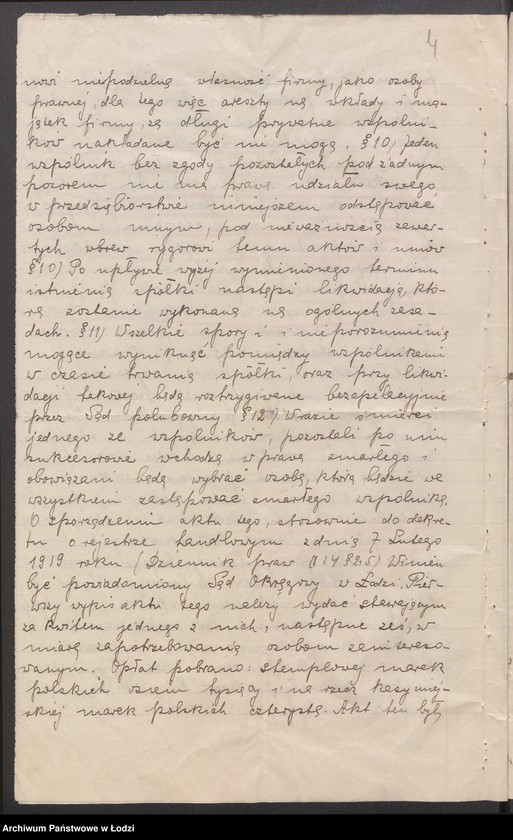 4
nowi niepodzielną własność firmy, jako osoby
prawnej, dla tego więc areszty na wkłady i ma-
jątek firmy, za długi prywatne wspólni-
ków nakładane być nie mogą. § 10) Jeden
wspólnik bez zgody pozostałych pod żadnym
pozorem nie ma prawa udziału swego
w przedsiębiorstwie niniejszem odstępować
osobom innym, pod nieważnością zawar-
tych wbrew rygorowi temu aktów i umów
§ 10) Po upływie wyżej wymienionego terminu
istnienia spółki nastąpi likwidacja, któ-
ra zostanie wykonaną na ogólnych zasa-
dach. § 11) Wszelkie spory i nieporozumienia
mogące wyniknąć pomiędzy wspólnikami
w czasie trwania spółki, oraz przy likwi-
dacji takowej będą roztrzygane bezapelacyjnie
przez Sąd polubowny § 12) W razie śmierci
jednego ze wspólników, pozostali po nim
sukcesorowie wchodzą w prawa zmarłego i
obowiązani będą wybrać osobę, która będzie we
wszystkiem zastępować zmarłego wspólnika.
O sporządzeniu aktu tego, stosownie do dekre-
tu o rejestrze handlowym z dnia 7 Lutego
1919 roku (Dziennik praw № 14 § 25) Winien
być powiadamiony Sąd Okręgowy w Łodzi. Pier-
wszy wypis aktu tego należy wydać stawającym
za kwitem jednego z nich, następne zaś, w
miarę zapotrzebowania osobom zainteresо-
wanym. Opłat pobrano: stemplowej marek
polskich osiem tysięcy i na rzecz kasy miej-
skiej marek polskich czterysta. Akt ten był
Archiwum Państwowe w Łodzi